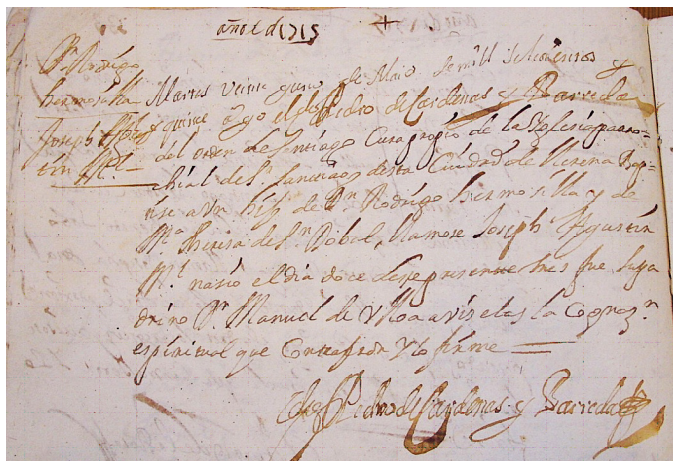 año d 1715
Dn Rodrigo
hermosilla
Joseph Agus
tin Ml
Martes Veinte y uno de Maio de mill setecientos y
quince años yo el Pedro de Cardenas y Barreda
del orden de Santiago Cura propio de la Yglesia parro-
chial de Sr Santiago desta Ciudad de Llerena Bap-
tise a Un hijo de Dn Rodrigo hermosilla y de
Da theresa de Sn Dobal, llamose Joseph Agustin
Ml nasio el dia doce deste presente mes fue su pa
drino Dn Manuel de Ulloa avisele la Cognaz.n
espiritual que Contrajeron y lo firme
Pedro de Cardenas y Barreda